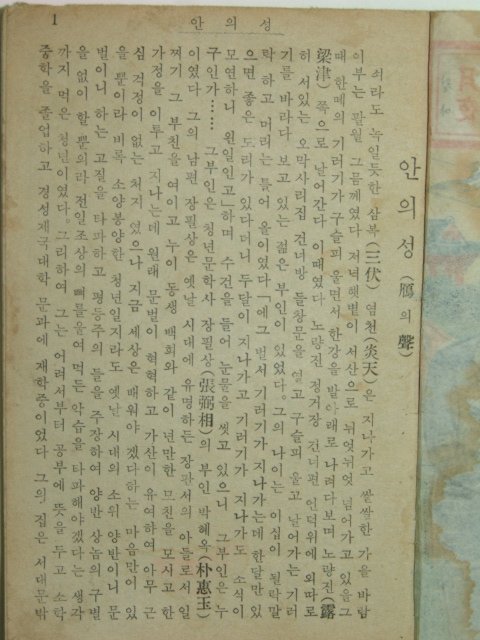 안의성
1
안의성 (鴈의 聲)
쇠라도 녹일듯한 삼복(三伏) 염천(炎天)은 지나가고 쌀쌀한 가을 바람
이부는 팔월 그믐께였다 저녁햇볕이 서산으로 뉘엿뉘엿 넘어가고 있을그
때 한떼의 기러기가구슬피 울면서 한강을 발아래로 나려다보며 노량진(露
梁津) 쪽으로 날어간다 이때였다 노량진 정거장 건너편 언덕위에 외따로
허 서있는 오막사리집 건너방 들창문을 열고구슬피 울고 날어가는 기러
기를 바라다 보고 있는 젊은 부인이 있었다。그의 나이는 이십이 될락말
락 하고 머리는 틀어 올이였다 「에그 벌서 기러기가 지나가는데한달만 있
으면 좋은 도리가 있다더니 두달이 지나가고 기러기가 지나가도 소식이
모연하니 왼일인고」하며 수건을 들어 눈물을 씻고 있으니 그부인은 누
구인가…… 그부인은 청년문학사 장필상(張弼相)의 부인 박혜옥(朴惠玉)
이였다 그의 남편 장필상은 옛날 시대에 유명하든 장판서의 아들로서 일
찌기 그 부친을 여이고 누이 동생 백희와 같이 년만한 모친을 모시고 한
가정을 이루고 지나는데 원래 문벌이 혁혁하고 가산이 유여하여 아무 근
심 걱정이 없는 처지 였으나 지금 세상은 배워야 겠다하는 마음만이 있
을 뿐이라 비록 소양봉양한 청년일지라도 옛날 시대의 소위 양반이니 문
벌이니 하는 고질을 타파하고 평등주의 들을 주장하여 양반 상놈의 구별
을 없이 할 뿐의라 전일조상의 뼈를울여 먹든 악습을 타파해야겠다는 생각
까지 먹은 청년이였다。그리하여 그는 어려서부터 공부에 뜻을 두고 소학
중학을 졸업하고 경성제국대학 문과에 재학중이였다 그의 집은 서대문밖